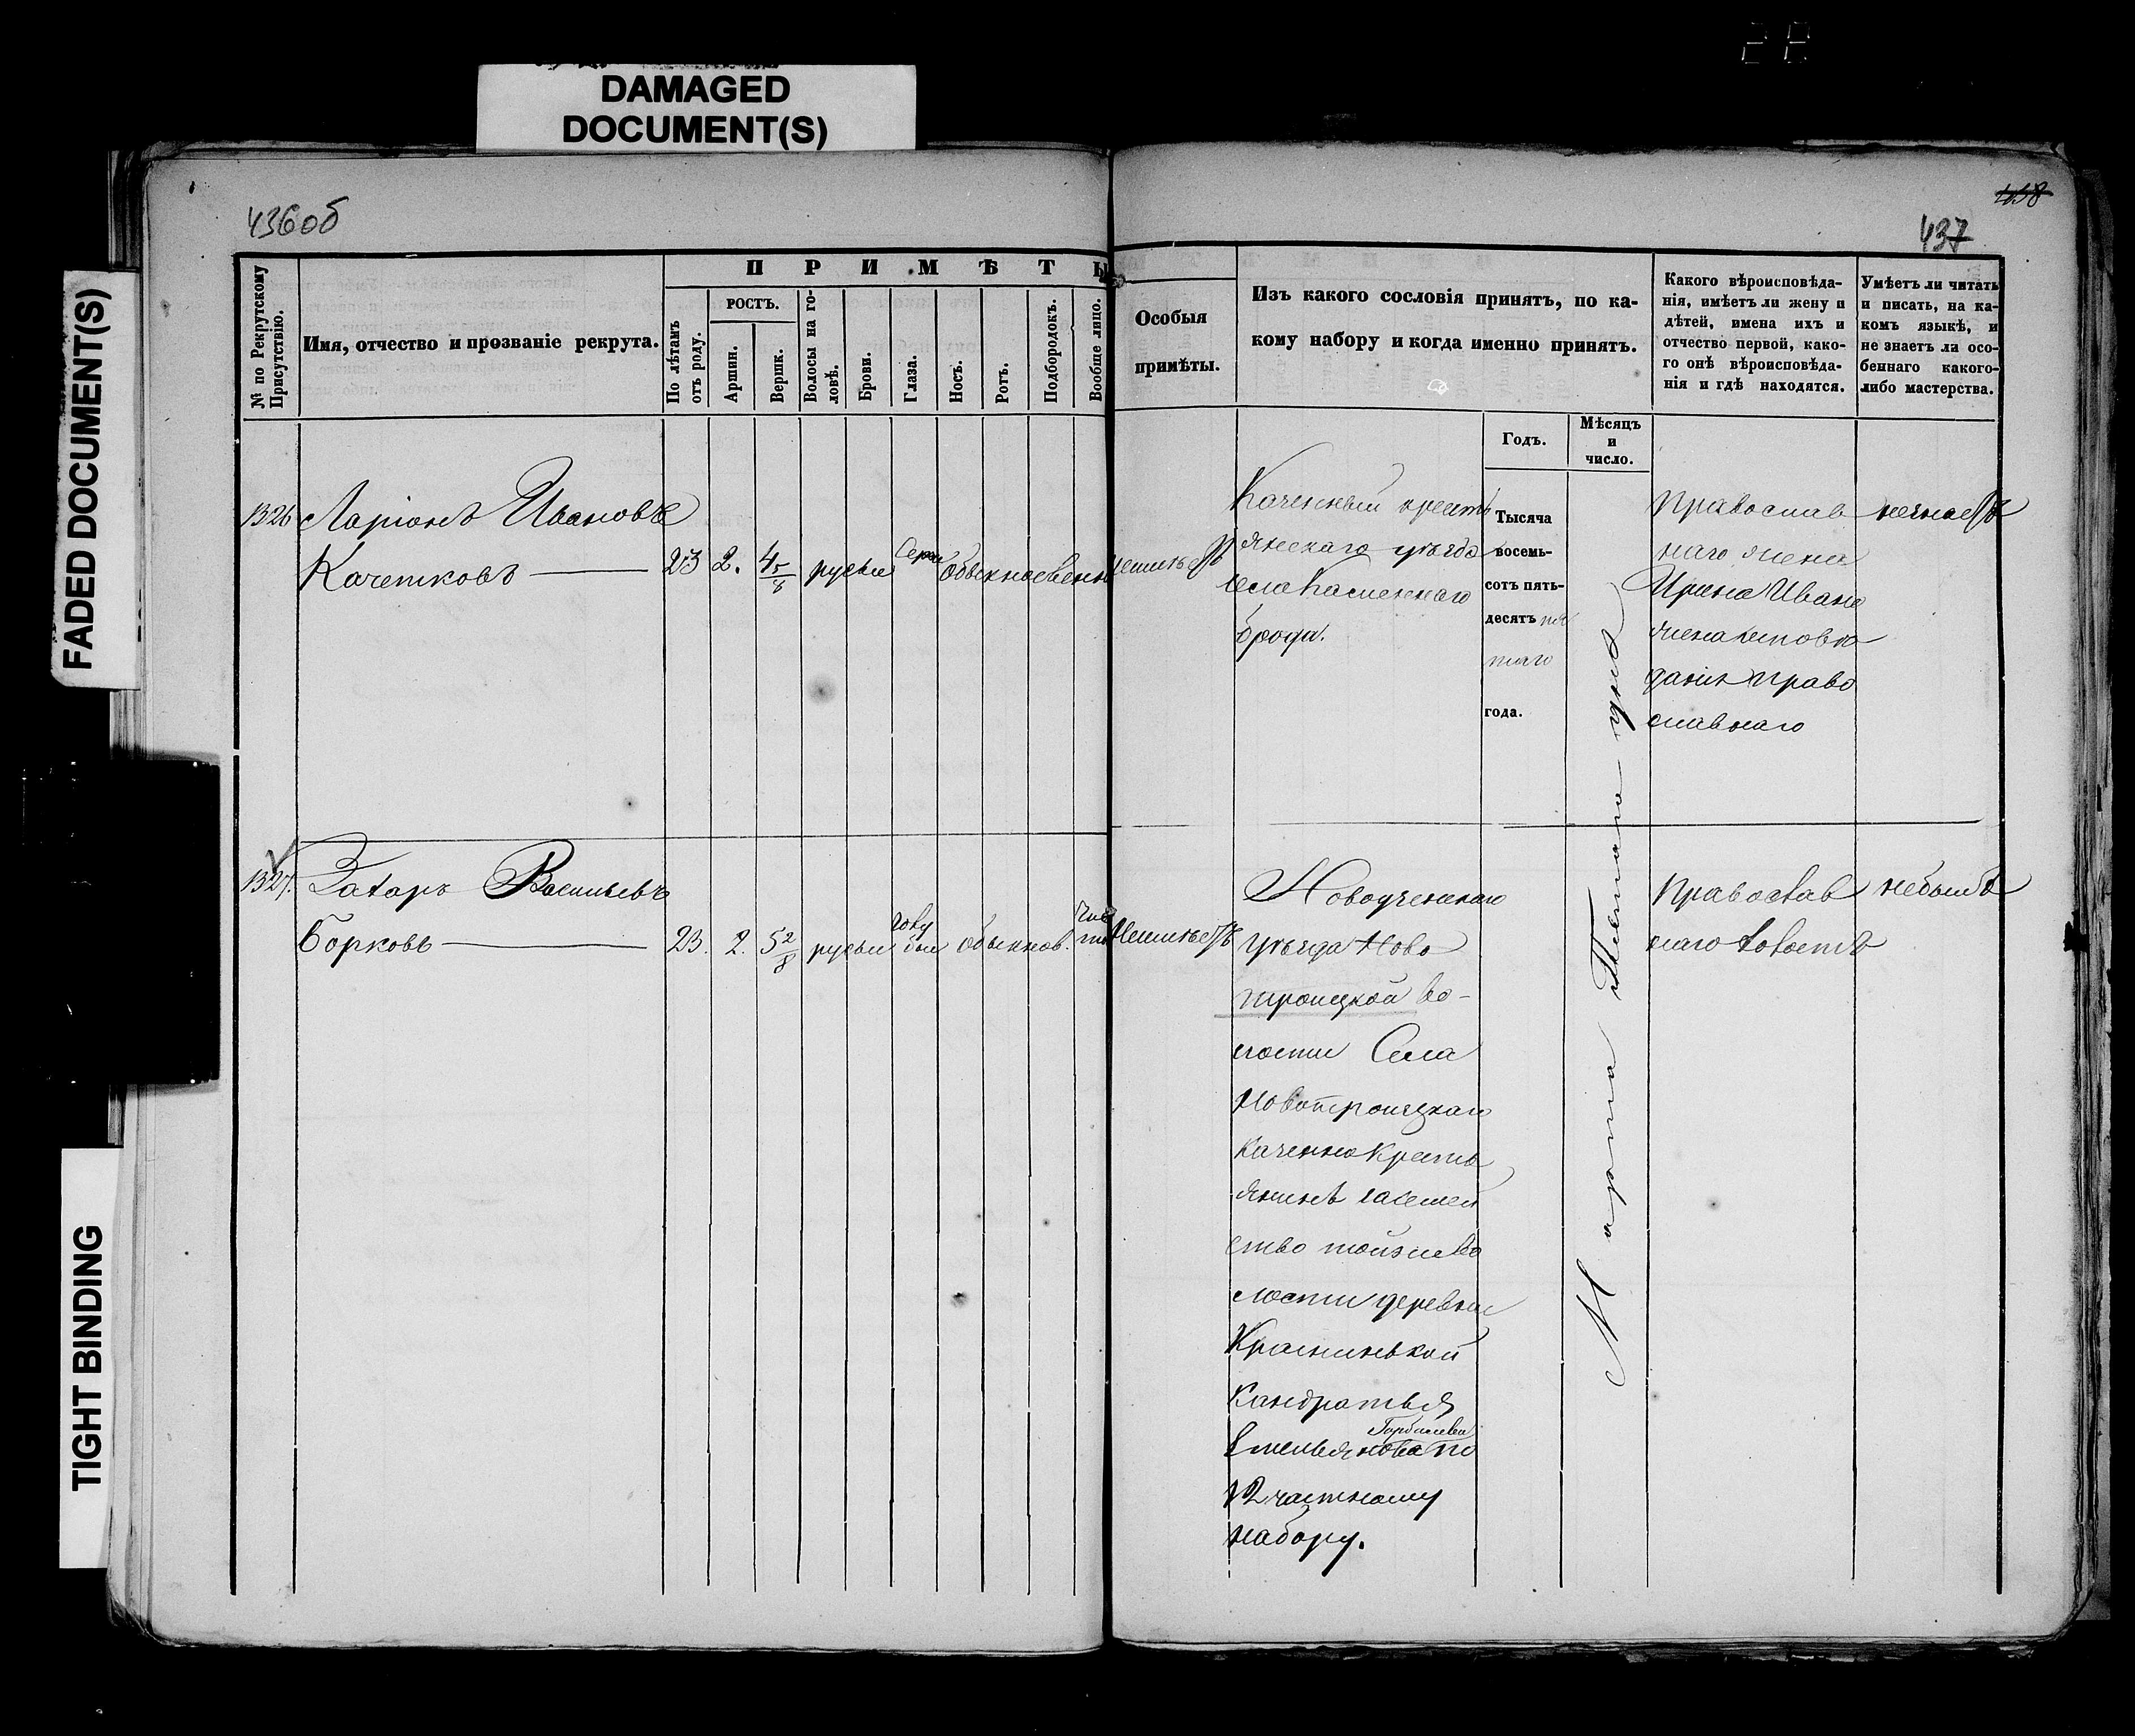 DAMAGED
DOCUMENT(S)
FADED DOCUMENT(S)
TIGHT BINDING
436 об
438
437
П Р И М Ѣ Т Ы
№ по Рекрутскому Присутствію.
Имя, отчество и прозваніе рекрута.
По лѣтамъ отъ роду.
РОСТЪ.
Аршин.
Вершк.
Волосы на головѣ.
Брови.
Глаза.
Носъ.
Ротъ.
Подбородокъ.
Вообще лицо.
Особыя
примѣты.
Изъ какого сословія принятъ, по ка-
кому набору и когда именно принятъ.
Годъ.
Мѣсяцъ
и
число.
Какого вѣроисповѣда-
нія, имѣетъ ли жену и
дѣтей, имена ихъ и
отчество первой, како-
го онѣ вѣроисповѣда-
нія и гдѣ находятся.
Умѣетъ ли читать
и писать, на ка-
комъ языкѣ, и
не знаетъ ли осо-
беннаго какого-
либо мастерства.
1326
Ларіонъ Ивановъ
Качетковъ
23 2. 4 5/8 русыи Серы Обыкносвенн
неимѣетъ
Каченный крестъ
янскаго уѣзда
села Каменнаго
брода.
Тысяча
восемь-
сотъ пять-
десятъ пя
таго
года.
Марта Пятаго дня
Православ
наго жена
Ирина Ивано
Православ
славнаго
незнаетъ
1327.
Захаръ Васильевъ
Борковъ
23. 2. 5 2/8 русыи голу бы обыкнов. чис то
Неимѣетъ
Новоузенскаго
уѣзда Ново
троицкой во-
лости Села
Новотроицкаго
Каченно Кресть
янинъ засемей
ство тойже во
лости деревни
Краснинькой
Кандратья
Емельянова Горбачева по
12 частному
набору.
Православ
наго холостъ
небылъ